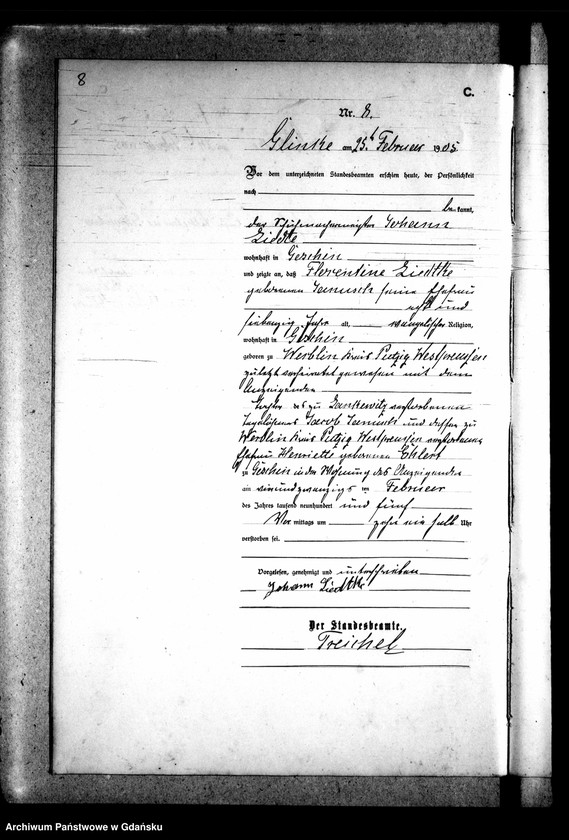 8
C.
Nr. 8.
Glinke am 25. Februar 1905
Vor dem unterzeichneten Standesbeamten erschien heute, der Persönlichkeit
nach
bekannt,
der Schuhmachermeister Johann
Liedtke
wohnhaft in Geschin
und zeigte an, daß Florentine Liedtke
geborenen Janusch seine Ehefrau
acht und
siebenzig Jahr alt, evangelischer Religion,
wohnhaft in Geschin
geboren zu Werblin Kreis Putzig Westpreußen
zuletzt verheiratet gewesen mit dem
Anzeigenden
Tochter des zu verstorbenen
Jacob Janusch und dessen zu
Werblin Kreis Putzig Westpreußen verstorbenen
Ehefrau Henriette geborenen Ehlert
zu Geschin in der Wohnung des Anzeigenden
am vierundzwanzigs ten Februar
des Jahres tausend neunhundert und fünf
Vor mittags um zehn ein halb Uhr
verstorben sei.
Vorgelesen, genehmigt und unterschrieben
Johann Liedtke
Der Standesbeamte.
Treichel
Archiwum Państwowe w Gdańsku